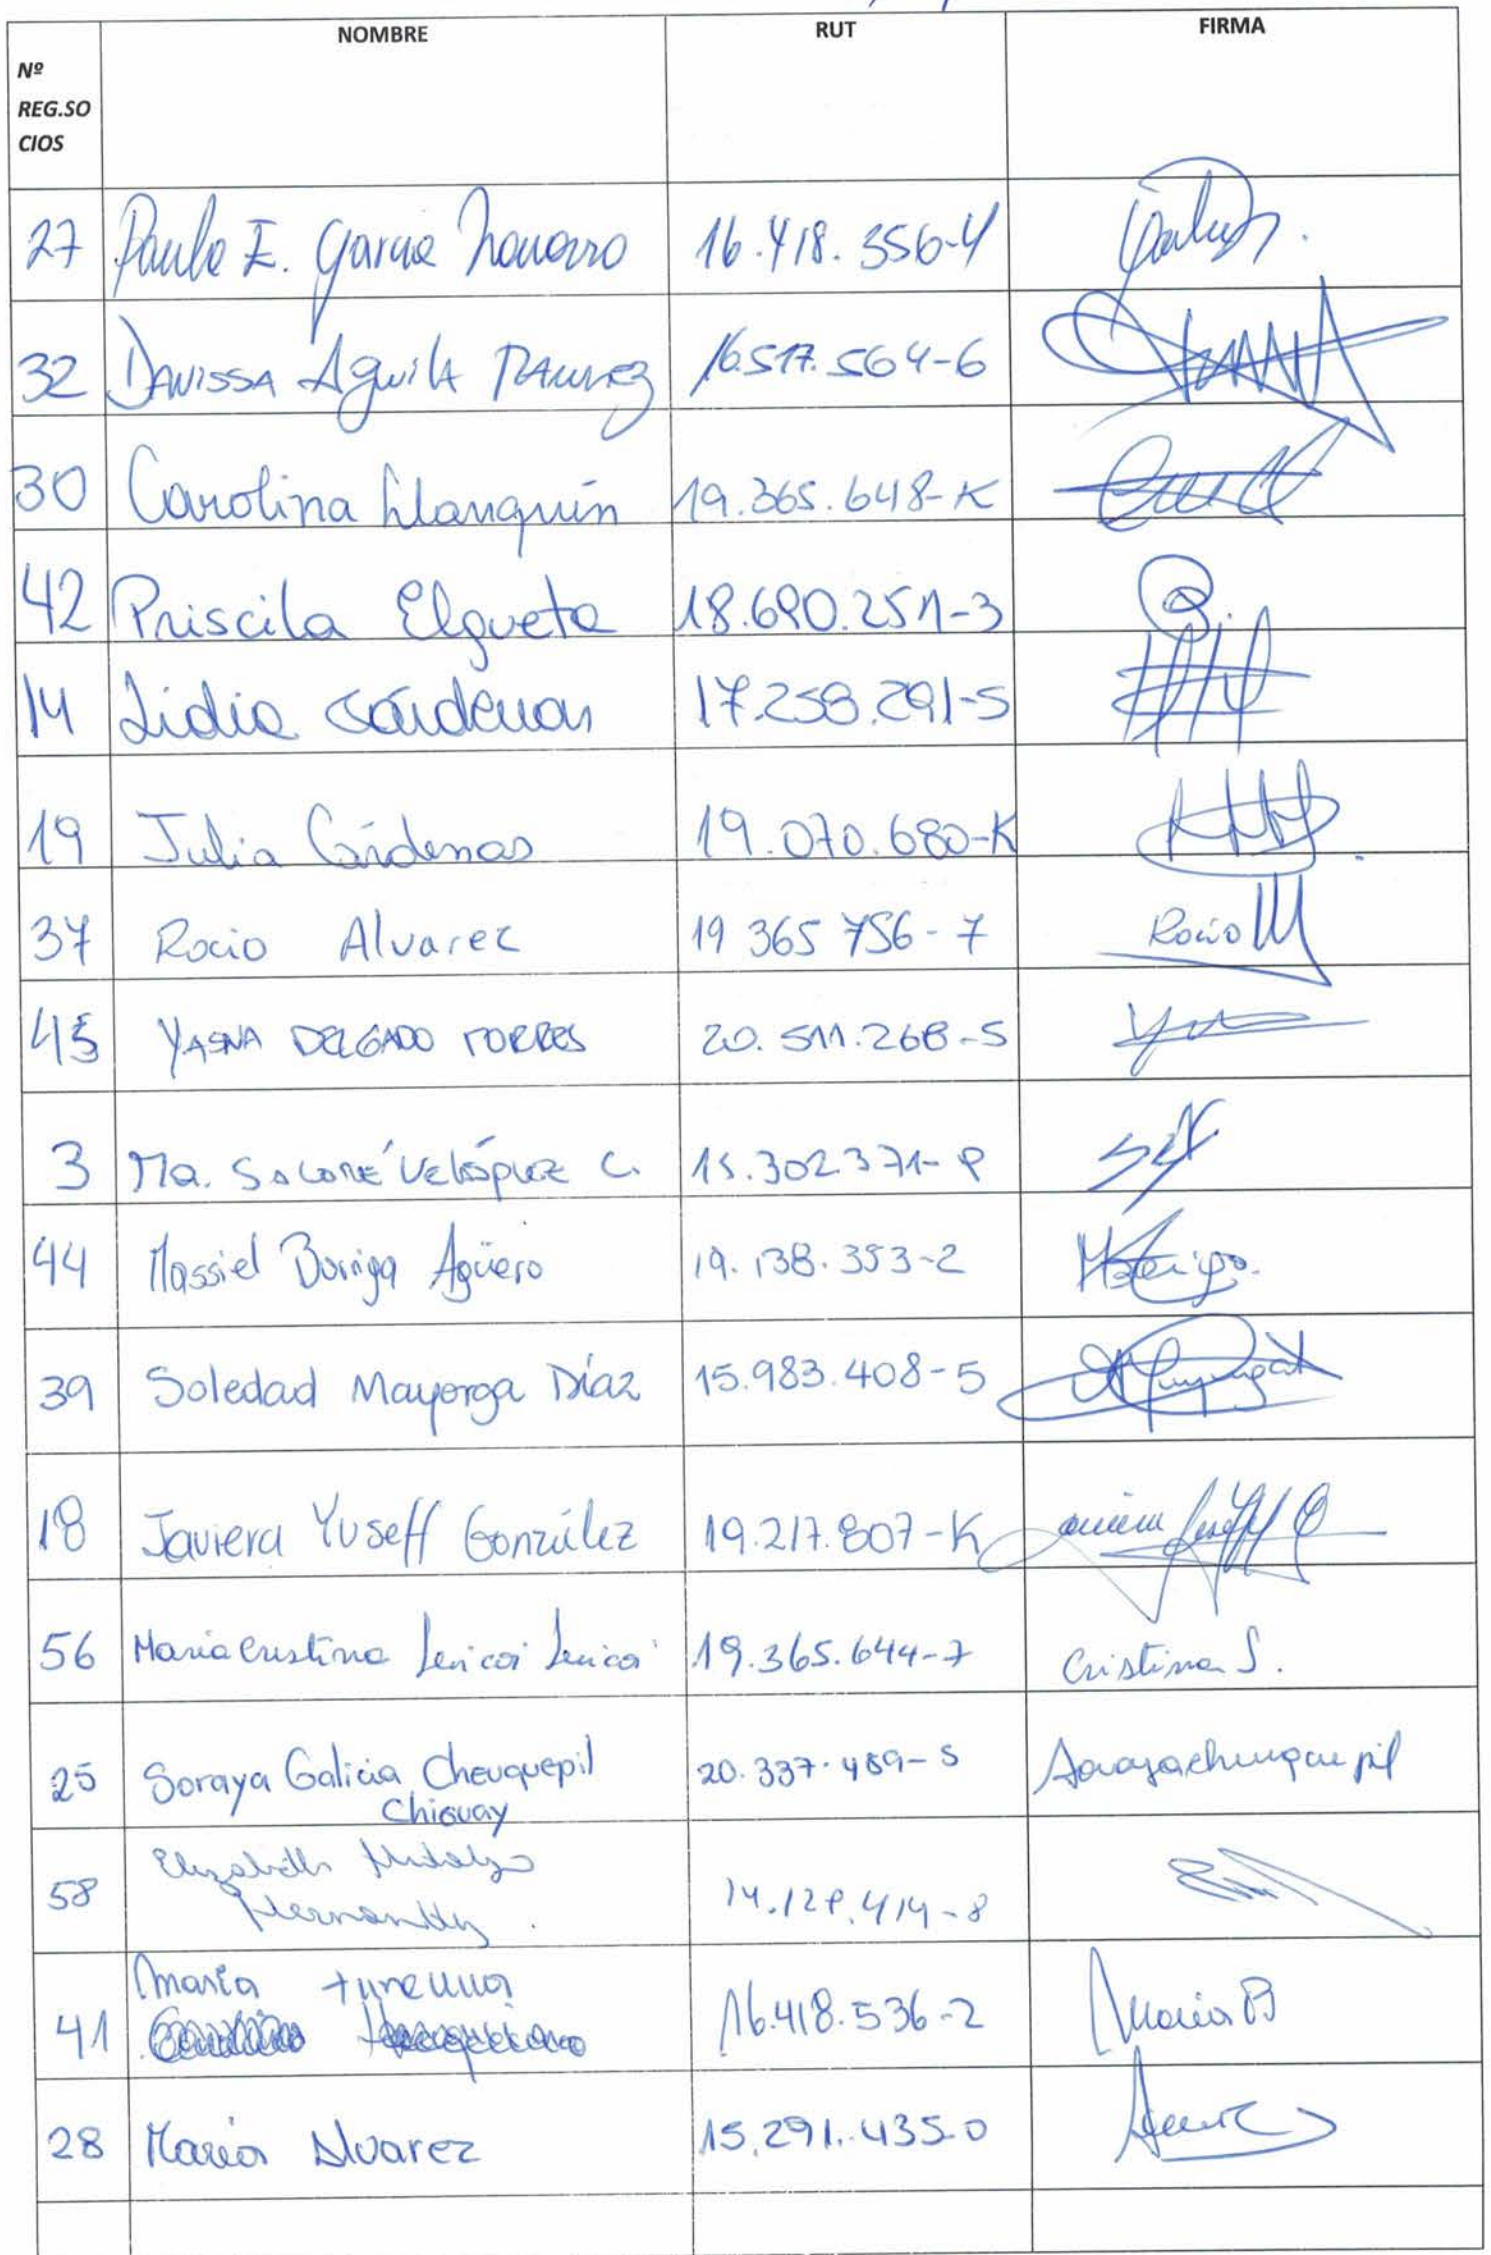 NOMBRE RUT FIRMA
Nº
REG.SO
CIOS
27 Paula E. Garcia Navarro 16.418.356-4
32 DAVISSA Aguila RAMIREZ 16.517.564-6
30 Carolina Llanquín 19.365.648-K
42 Priscila Elgueta 18.690.251-3
14 Lidia Cárdenas 17.258.291-5
19 Julia Cárdenas 19.070.680-K
37 Rocio Alvarez 19 365 756-7 Rocio
45 YASNA DELGADO TORRES 20.511.268-5
3 Ma. SALOMÉ Velásquez C. 15.302.371-9
44 Massiel Barriga Agüero 19.138.353-2
39 Soledad Mayorga Díaz 15.983.408-5
18 Javiera Yuseff González 19.217.807-K
56 Maria Cristina 19.365.644-7 Cristina S.
25 Soraya Galicia Cheuquepil 20.337.489-5 Sorayacheuquepil
Chiguay
58 Elizabeth Hidalgo 14.129.414-8
Hernandez.
María
41 16.418.536-2 Maria B
28 Maria Alvarez 15.291.435-0